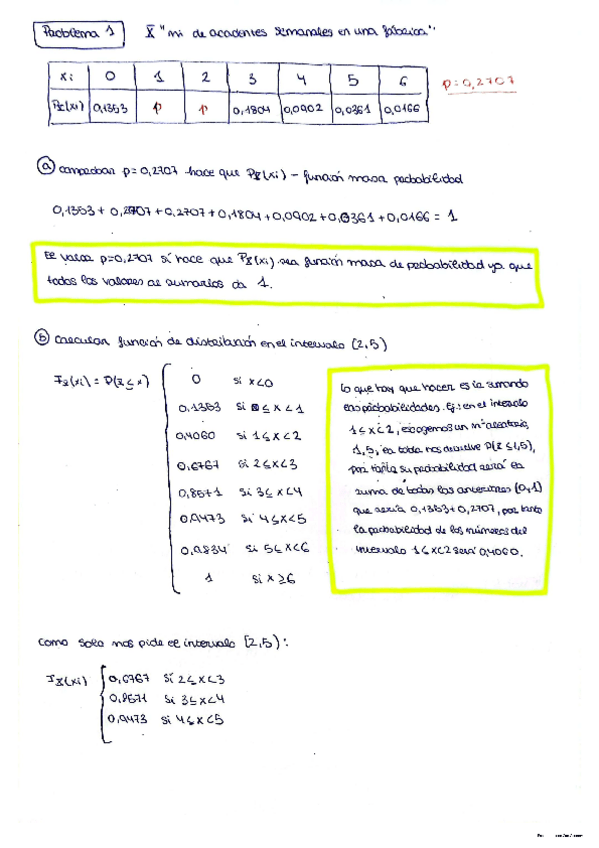 Problema 1 X "nº de accidentes semanales en una fábrica".
xi 0 1 2 3 4 5 6
PX(xi) 0,1353 p p 0,1804 0,0902 0,0361 0,0166
p=0,2707
a) comprobar p=0,2707 hace que PX(xi) - función masa probabilidad
0,1353 + 0,2707 + 0,2707 + 0,1804 + 0,0902 + 0,0361 + 0,0166 = 1
El valor p=0,2707 sí hace que PX(xi) sea función masa de probabilidad ya que
todos los valores al sumarlos da 1.
b) calcular función de distribución en el intervalo [2,5)
FX(xi) = P(X ≤ x)
0 si x<0
0,1353 si 0 ≤ x < 1
0,4060 si 1 ≤ x < 2
0,6767 si 2 ≤ x < 3
0,8571 si 3 ≤ x < 4
0,9473 si 4 ≤ x < 5
0,9834 si 5 ≤ x < 6
1 si x ≥ 6
Lo que hay que hacer es ir sumando
las probabilidades. Ej.: en el intervalo
1 ≤ x < 2, escogemos un nº aleatorio,
1,5, la tabla nos devuelve P(X ≤ 1,5),
por tanto su probabilidad será la
suma de todas las anteriores (0,1)
que sería 0,1353 + 0,2707, por tanto
la probabilidad de los números del
intervalo 1 ≤ x < 2 será 0,4060.
como solo nos pide el intervalo [2,5):
FX(xi)
0,6767 si 2 ≤ x < 3
0,8571 si 3 ≤ x < 4
0,9473 si 4 ≤ x < 5